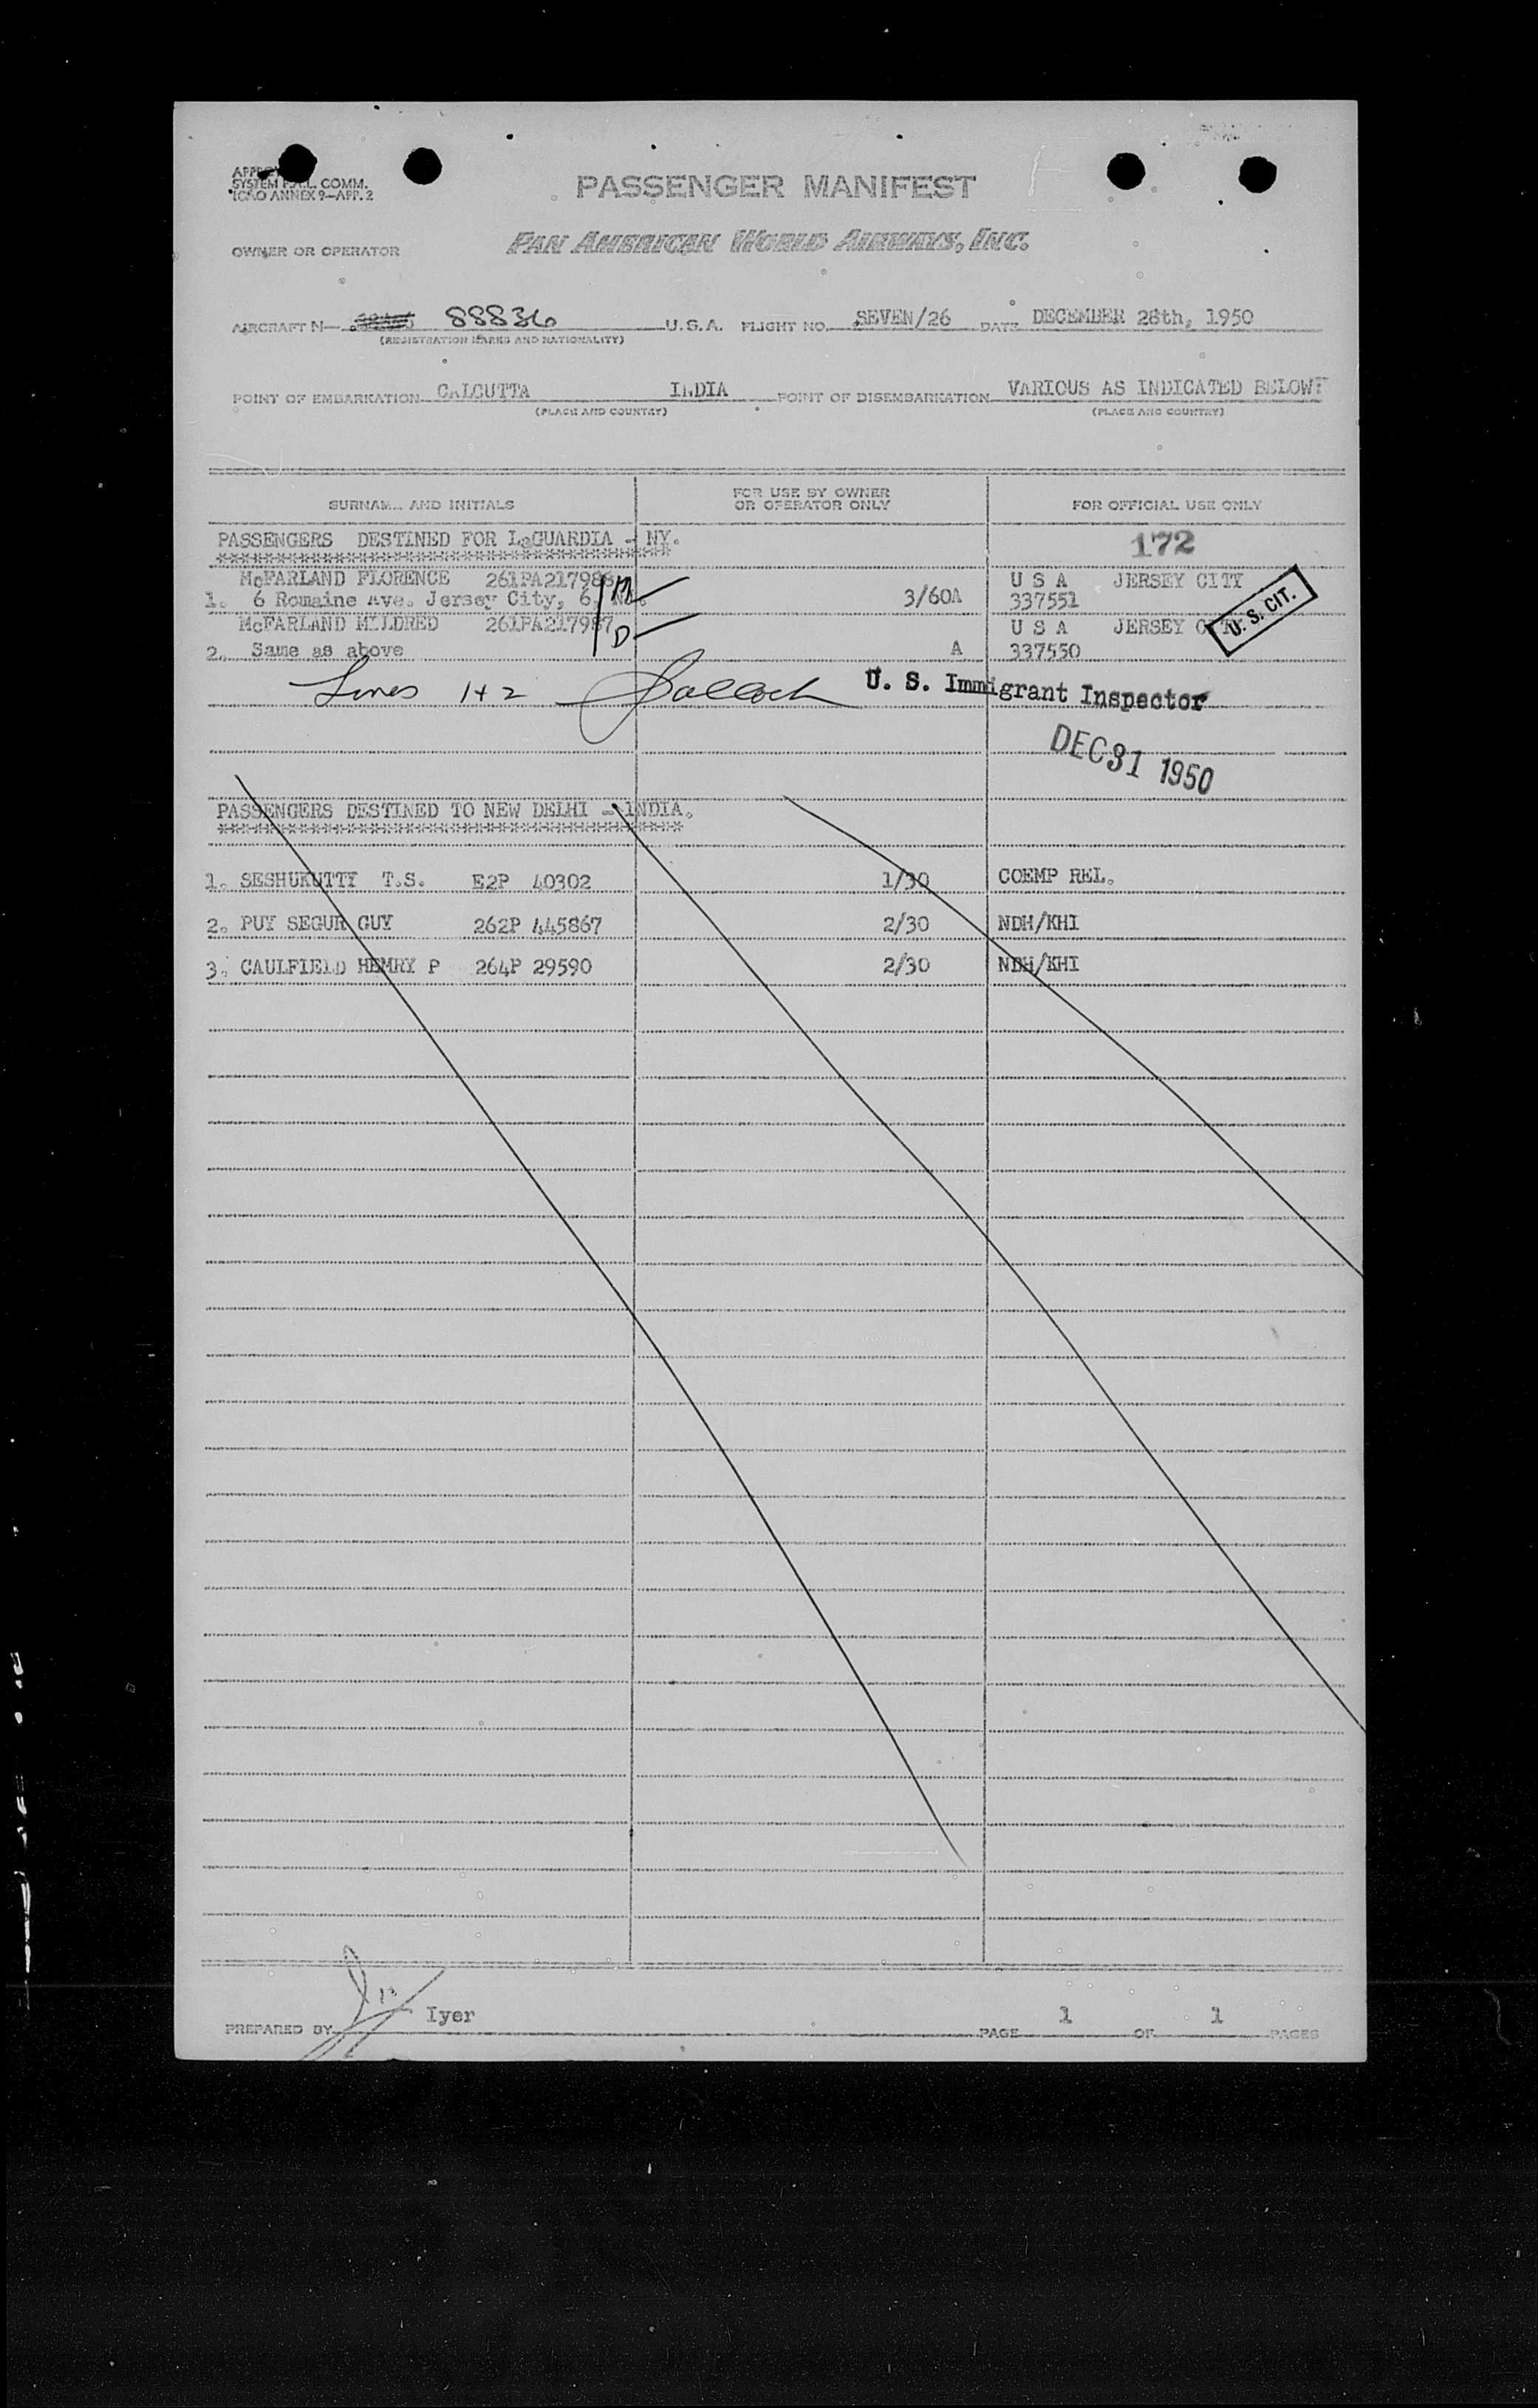 SYSTEM COMM.
ICAO ANNEX 9—APP. 2
PASSENGER MANIFEST
OWNER OR OPERATOR
PAN AMERICAN WORLD AIRWAYS, INC.
AIRCRAFT N— 88836 U.S.A. FLIGHT NO. SEVEN/26 DATE DECEMBER 28th, 1950
(REGISTRATION MARKS AND NATIONALITY)
POINT OF EMBARKATION CALCUTTA INDIA POINT OF DISEMBARKATION VARIOUS AS INDICATED BELOW:
(PLACE AND COUNTRY) (PLACE AND COUNTRY)
SURNAME AND INITIALS FOR USE BY OWNER OR OPERATOR ONLY FOR OFFICIAL USE ONLY
PASSENGERS DESTINED FOR LaGUARDIA - NY. 172
McFARLAND FLORENCE 261PA217988 M U S A JERSEY CITY
1. 6 Romaine Ave. Jersey City, 6, 3/60A 337551
U. S. CIT.
McFARLAND MILDRED 261PA217987 D U S A JERSEY CITY
2. Same as above A 337550
Lines 1+2 U. S. Immigrant Inspector
DEC 31 1950
PASSENGERS DESTINED TO NEW DELHI - INDIA.
1. SESHUKUTTY T.S. E2P 40302 1/30 COEMP REL.
2. PUY SEGUR GUY 262P 445867 2/30 NDH/KHI
3. CAULFIELD HEMRY P 264P 29590 2/30 NDH/KHI
PREPARED BY Iyer PAGE 1 OF 1 PAGES